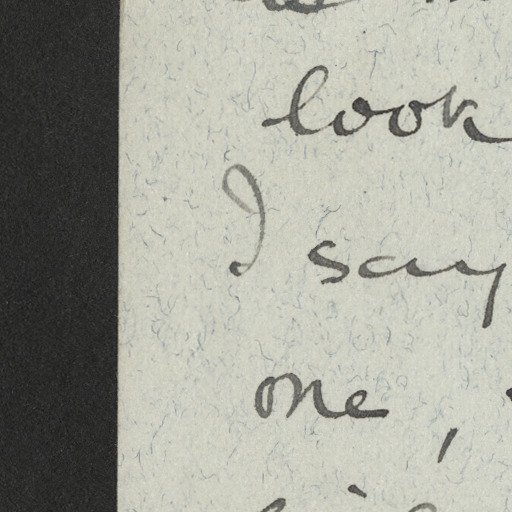 look
I say
one,